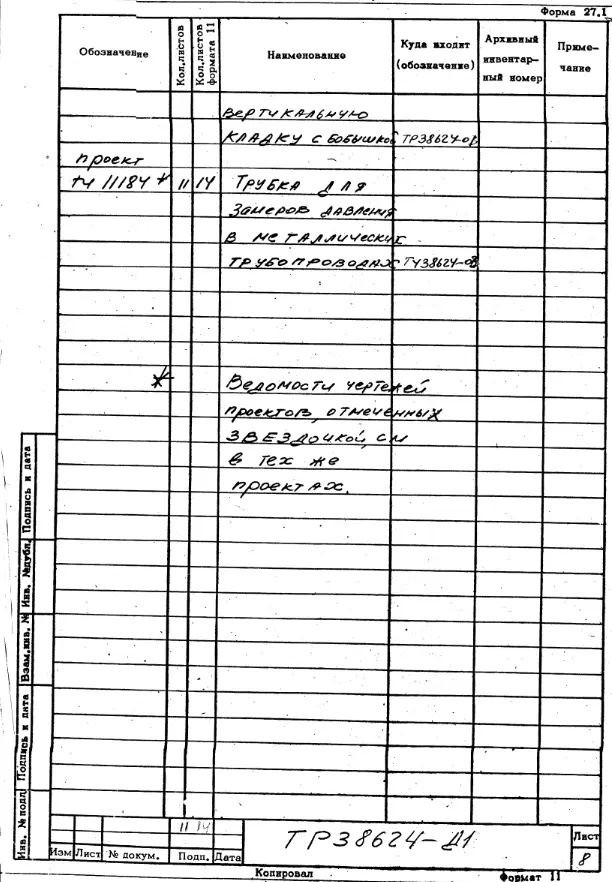 Форма 27.1
Обозначение Кол.листов Кол.листов формата 11 Наименование Куда входит (обозначение) Архивный инвентарный номер Примечание
вертикальную
кладку с бобышкой ТР38624-08
проект
ТЧ 11184 * 11 14 Трубка для
замеров давления
в металлических
трубопроводах ТЧ38624-08
* Ведомости чертежей
проектов, отмеченных
звездочкой, см
в тех же
проектах.
Инв. № подл Подпись и дата Взам.инв. № Инв. №дубл. Подпись и дата
11 14
ТР38624-Д1
Лист
8
Изм Лист № докум. Подп. Дата
Копировал Формат 11